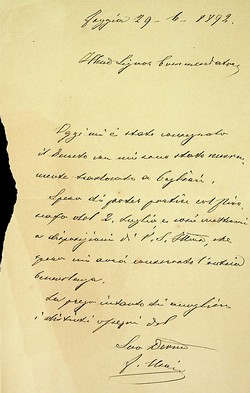 Foggia 29-6-1892.
Illmo Signor Commendatore
Oggi mi è stato consegnato
il Decreto con cui sono stato nuova-
mente traslocato a Cagliari.
Spero di poter partire col piro-
scafo del 2 Luglio e così mettermi
a disposizione di V. S. Illma, che
spero mi avrà conservata l'antica
benevolenza.
La prego intanto di accogliere
i distinti ossequi del
Suo Devmo